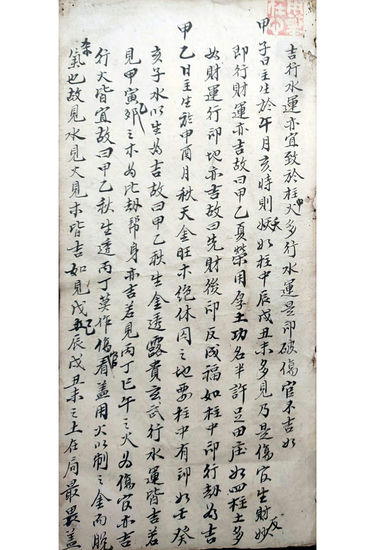 吉行水運亦宜致於柱中火多行水運是印破傷官不吉如
甲子日主生於午月亥時則妖夭如柱中辰戌丑未多見乃是傷官生財妙反
即行財運亦吉故曰甲乙夏榮用厚土功名半許足田庄如四柱土多
如財運行印地亦吉故曰先財後印反成福如柱中印行劫為吉
甲乙日主生於申酉月秋天金旺木絕休囚之地要柱中有印如壬癸
亥子水以生為吉故曰甲乙秋生金透露貴玄武行水運皆吉若
見甲寅乙卯之木為比劫幫身亦吉若見丙丁巳午之火為傷官亦吉
行火皆宜故曰甲乙秋生透丙丁莫作傷官看蓋用火以制之金而脫
木氣也故見水見火見木皆吉如見戊己辰戌丑未之土在局最畏蓋